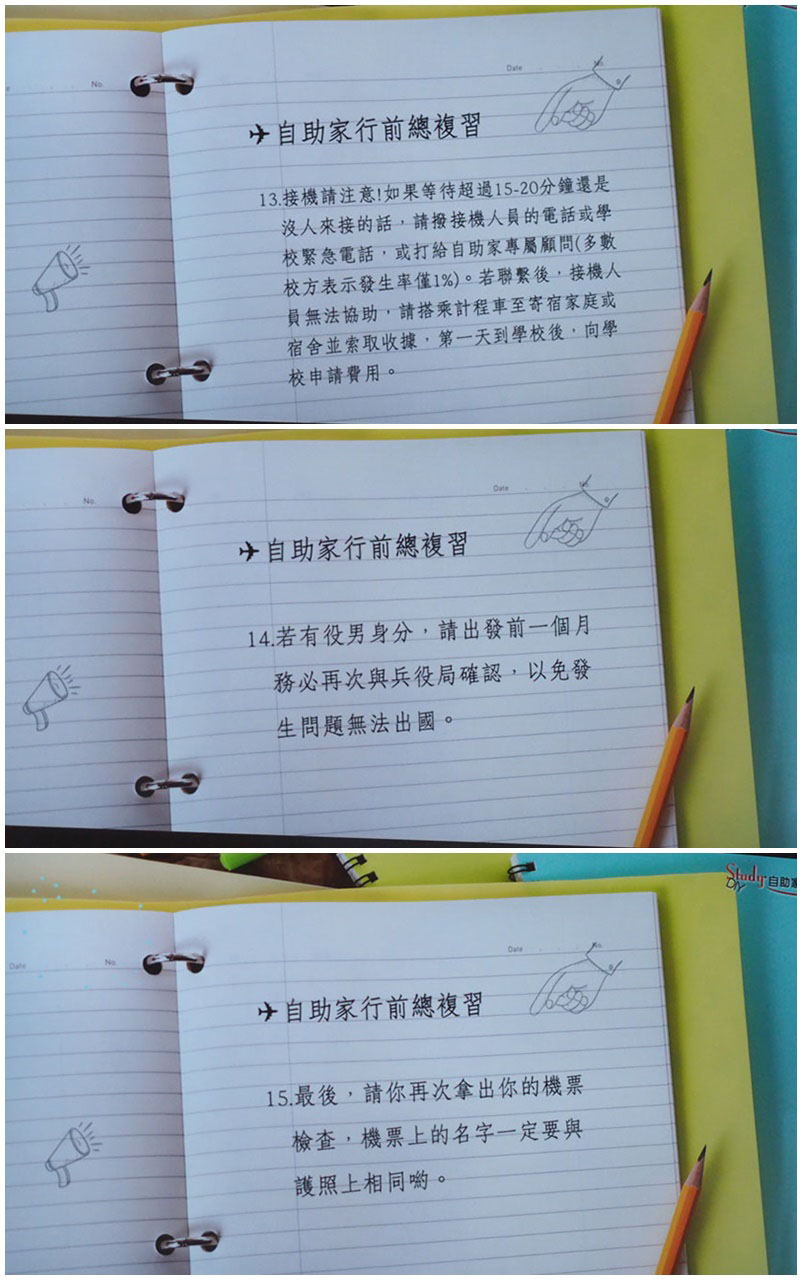 Date
No.
No.
✈自助家行前總複習
13.接機請注意!如果等待超過15-20分鐘還是
沒人來接的話，請撥接機人員的電話或學
校緊急電話，或打給自助家專屬顧問(多數
校方表示發生率僅1%)。若聯繫後，接機人
員無法協助，請搭乘計程車至寄宿家庭或
宿舍並索取收據，第一天到學校後，向學
校申請費用。
Date
No.
No.
✈自助家行前總複習
14.若有役男身分，請出發前一個月
務必再次與兵役局確認，以免發
生問題無法出國。
Study DIY 自助家
Date
No.
Date
No.
✈自助家行前總複習
15.最後，請你再次拿出你的機票
檢查，機票上的名字一定要與
護照上相同喲。